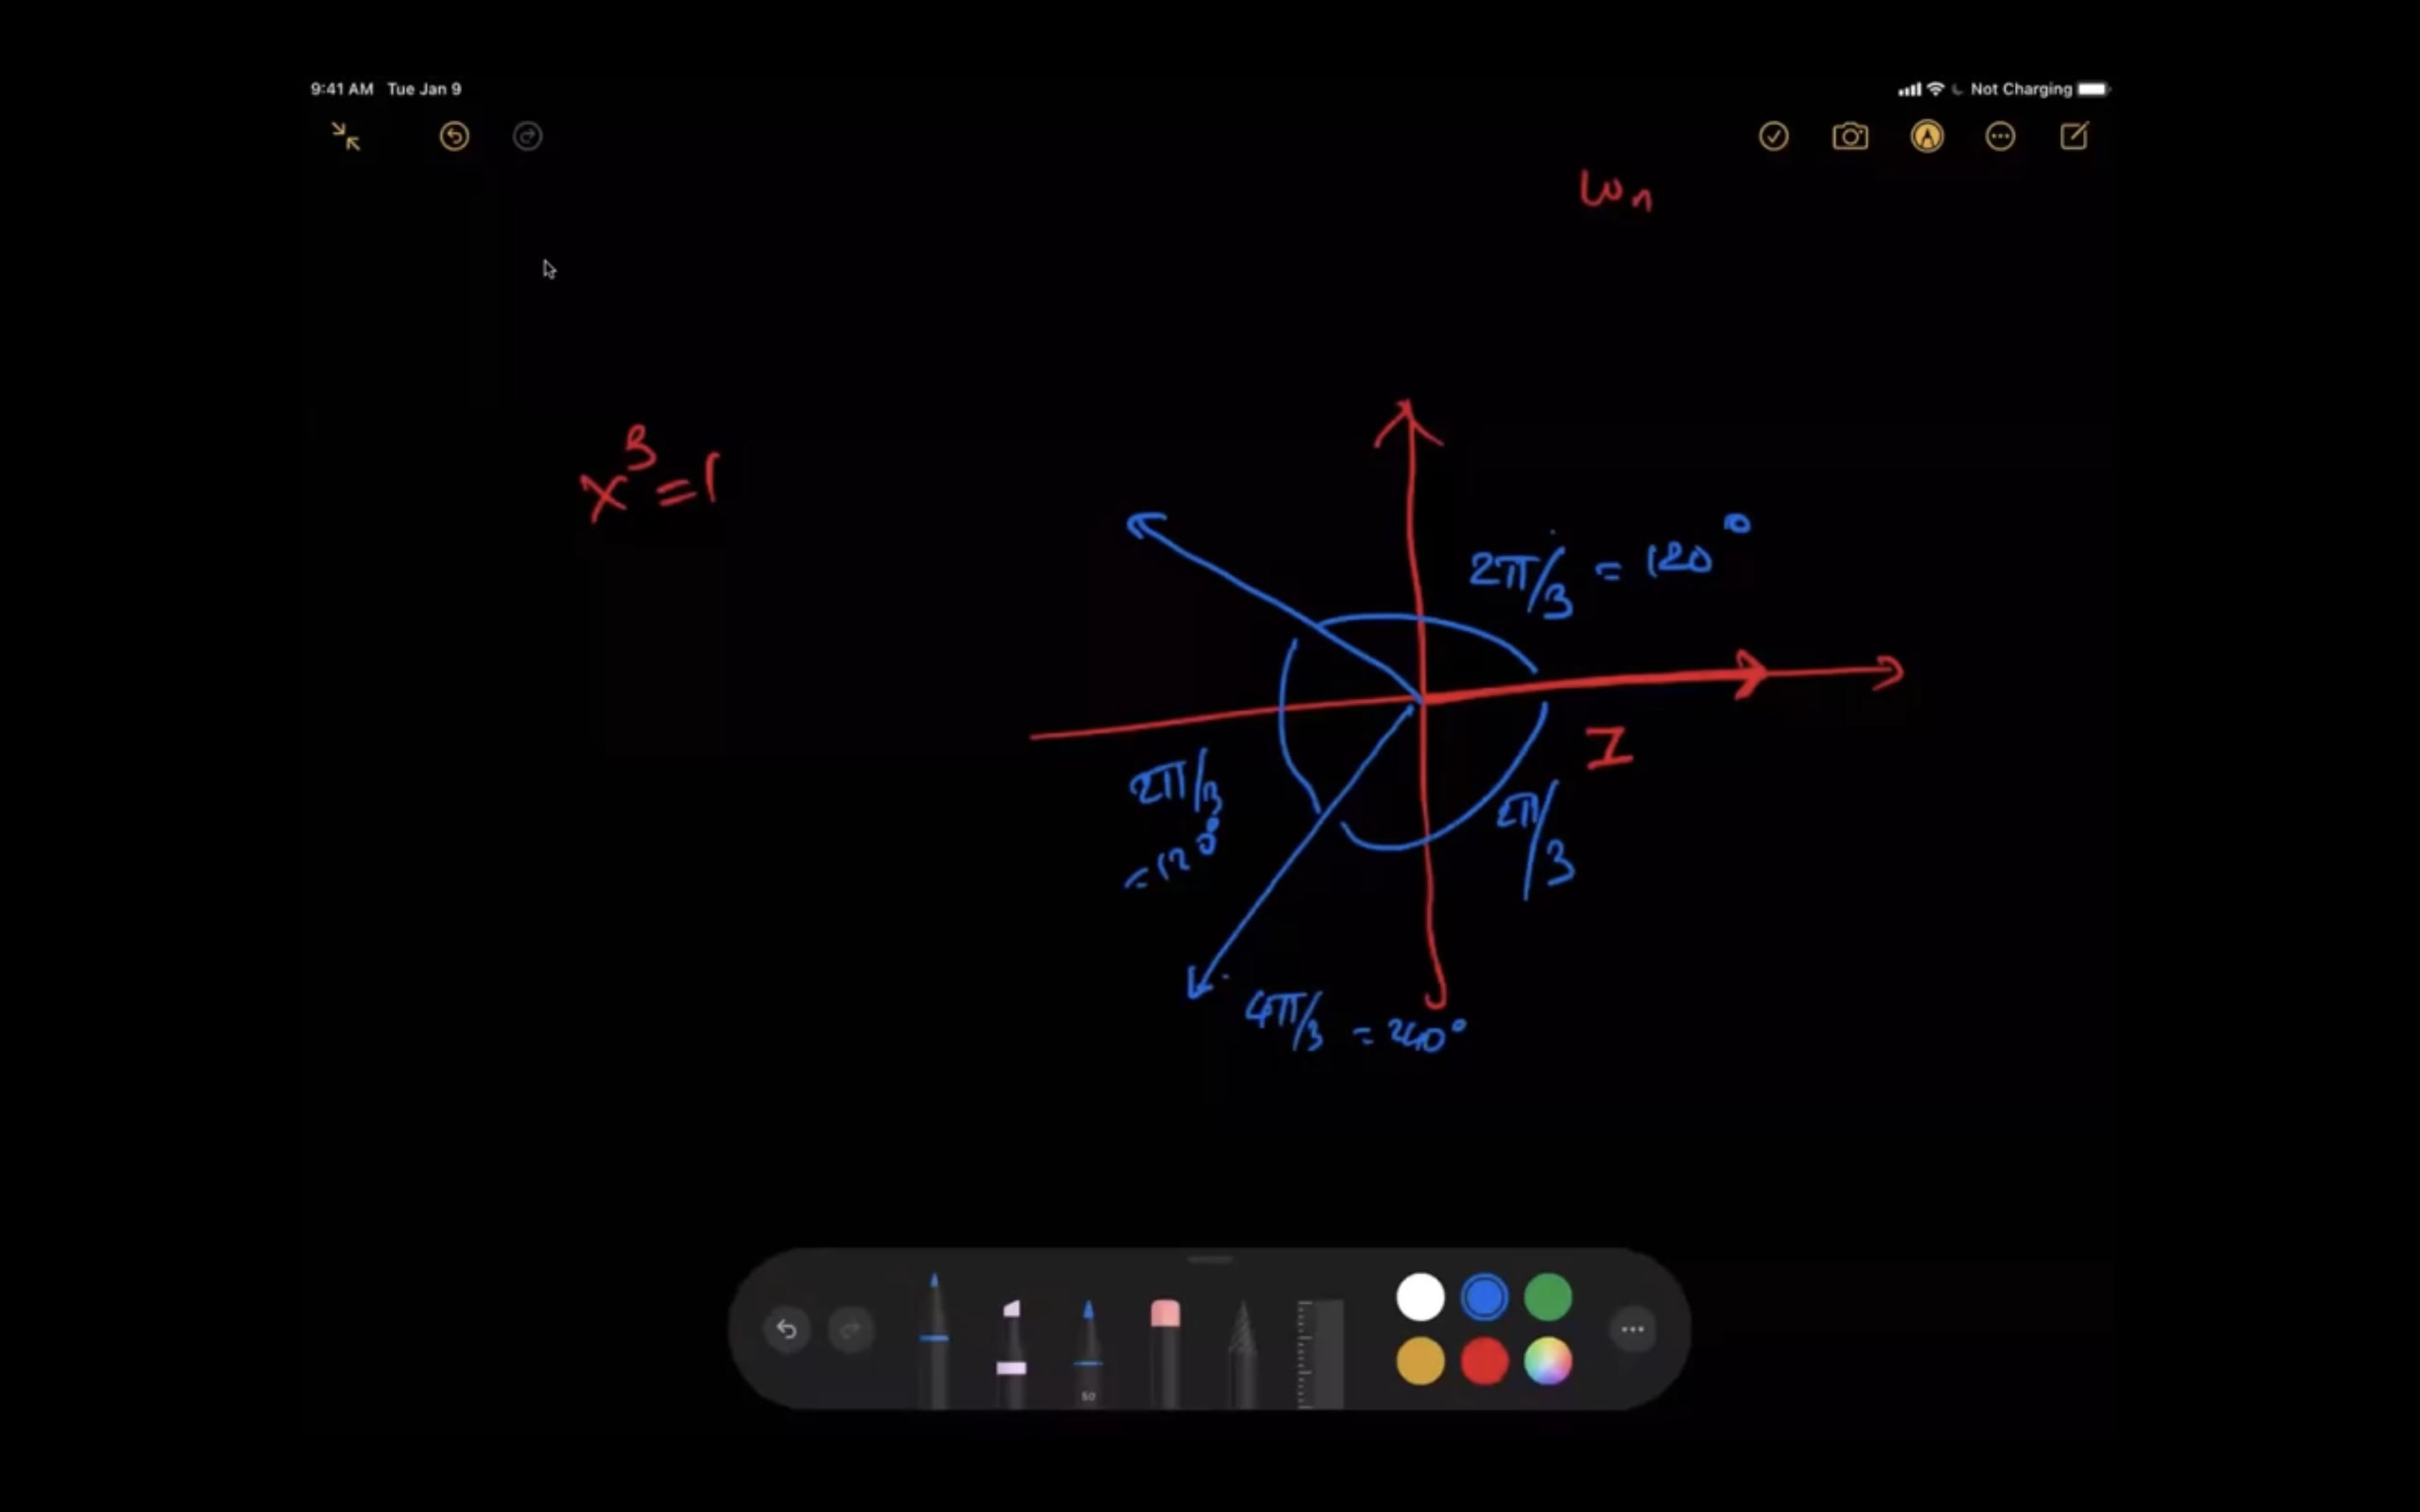 9:41 AM Tue Jan 9
Not Charging
ωn
x³=1
2π/3 = 120°
I
2π/3
=120°
2π/3
4π/3 = 240°
50